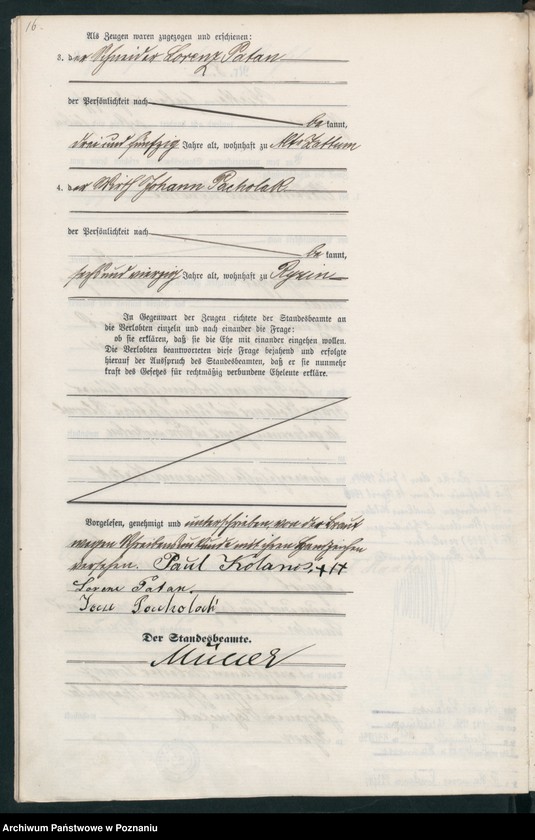 16.
Als Zeugen waren zugezogen und erschienen:
3. der Schneider Lorenz Patan
der Persönlichkeit nach
bekannt,
drei und fünfzig Jahre alt, wohnhaft zu Alt
4. der Wirth Johann Pacholak
der Persönlichkeit nach
bekannt,
sechs und vierzig Jahre alt, wohnhaft zu Ryzin
In Gegenwart der Zeugen richtete der Standesbeamte an
die Verlobten einzeln und nach einander die Frage:
ob sie erklären, daß sie die Ehe mit einander eingehen wollen.
Die Verlobten beantworteten diese Frage bejahend und erfolgte
hierauf der Ausspruch des Standesbeamten, daß er sie nunmehr
kraft des Gesetzes für rechtmäßig verbundene Eheleute erkläre.
Vorgelesen, genehmigt und unterschrieben, von der Braut
wegen Schreibensunkunde mit ihren Handzeichen
versehen. Paul Kolanos, +++
Lorenz Patan.
Der Standesbeamte.
Müller
Archiwum Państwowe w Poznaniu